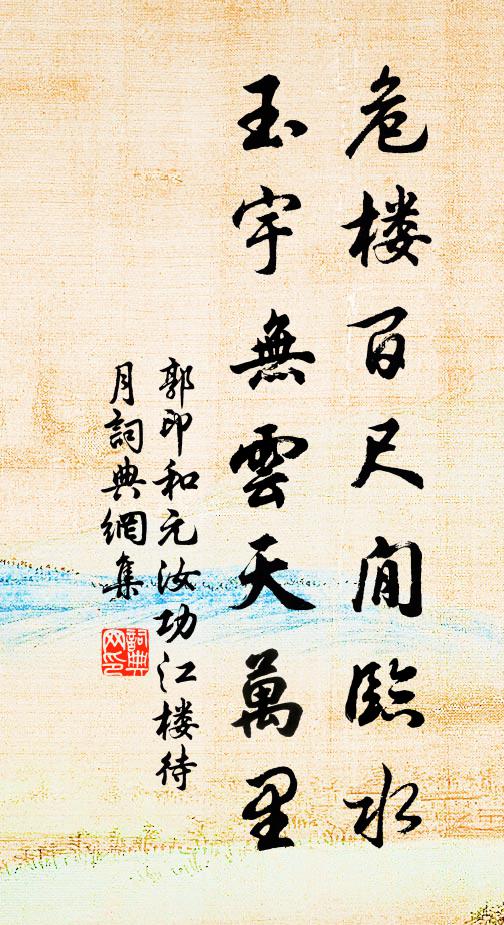 危楼百尺閒臨水
玉宇無雲天萬里
郭印和元汝功江楼待
月詞典網集
詞典
网印